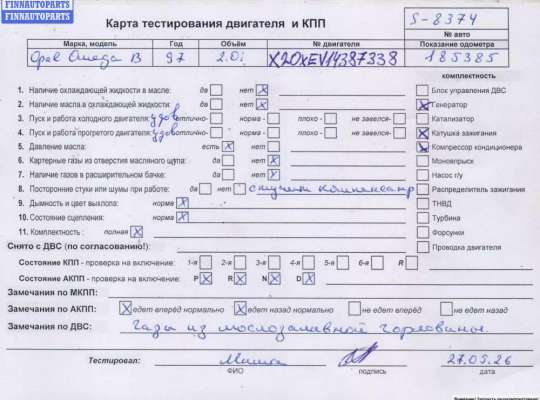 FINNAUTOPARTS
FINNAUTOPARTS
Карта тестирования двигателя и КПП
S-8374
№ авто
Марка, модель Год Объём № двигателя Показание одометра
Opel Omega B 97 2.0i X20XEV14387338 185385
комплектность
1. Наличие охлаждающей жидкости в масле: да нет X Блок управления ДВС
2. Наличие масла в охлаждающей жидкости: да нет X Генератор
3. Пуск и работа холодного двигателя: удов отлично- норма - плохо - не завелся- Катализатор
4. Пуск и работа прогретого двигателя: удов отлично- норма - плохо - не завелся- Катушка зажигания
5. Давление масла: есть X нет Компрессор кондиционера
6. Картерные газы из отверстия масляного щупа: да нет X Моновпрыск
7. Наличие газов в расширительном бачке: да нет X Насос г/у
8. Посторонние стуки или шумы при работе: да нет стучит компенсатор Распределитель зажигания
9. Дымность и цвет выхлопа: норма X ТНВД
10. Состояние сцепления: норма X Турбина
11. Комплектность : полная X Форсунки
Снято с ДВС (по согласованию!): Проводка двигателя
Состояние КПП - проверка на включение: 1-я 2-я 3-я 4-я 5-я 6-я R
Состояние АКПП - проверка на включение: P X R X N X D X
Замечания по МКПП:
Замечания по АКПП: X едет вперёд нормально X едет назад нормально не едет вперёд не едет назад
Замечания по ДВС: Газы из маслозаливной горловины.
Тестировал: Миша 27.05.26
ФИО подпись дата